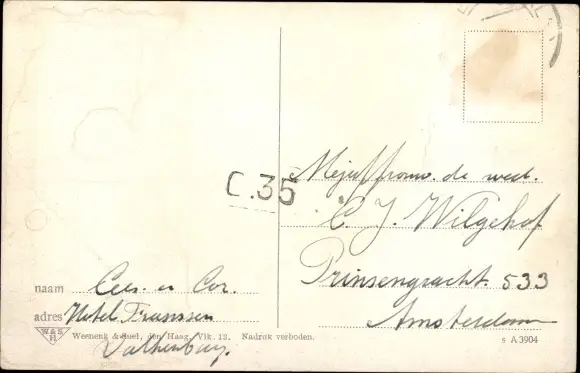 C.35
Mejuffrouw. de wed.
C. J. Wilgehof
Prinsengracht. 533
Amsterdam
naam Cees. en Cor.
adres Hotel Franssen
Valkenburg.
W&S H.
Weenenk & Snel, den Haag, Vik. 13. Nadruk verboden.
s A3904